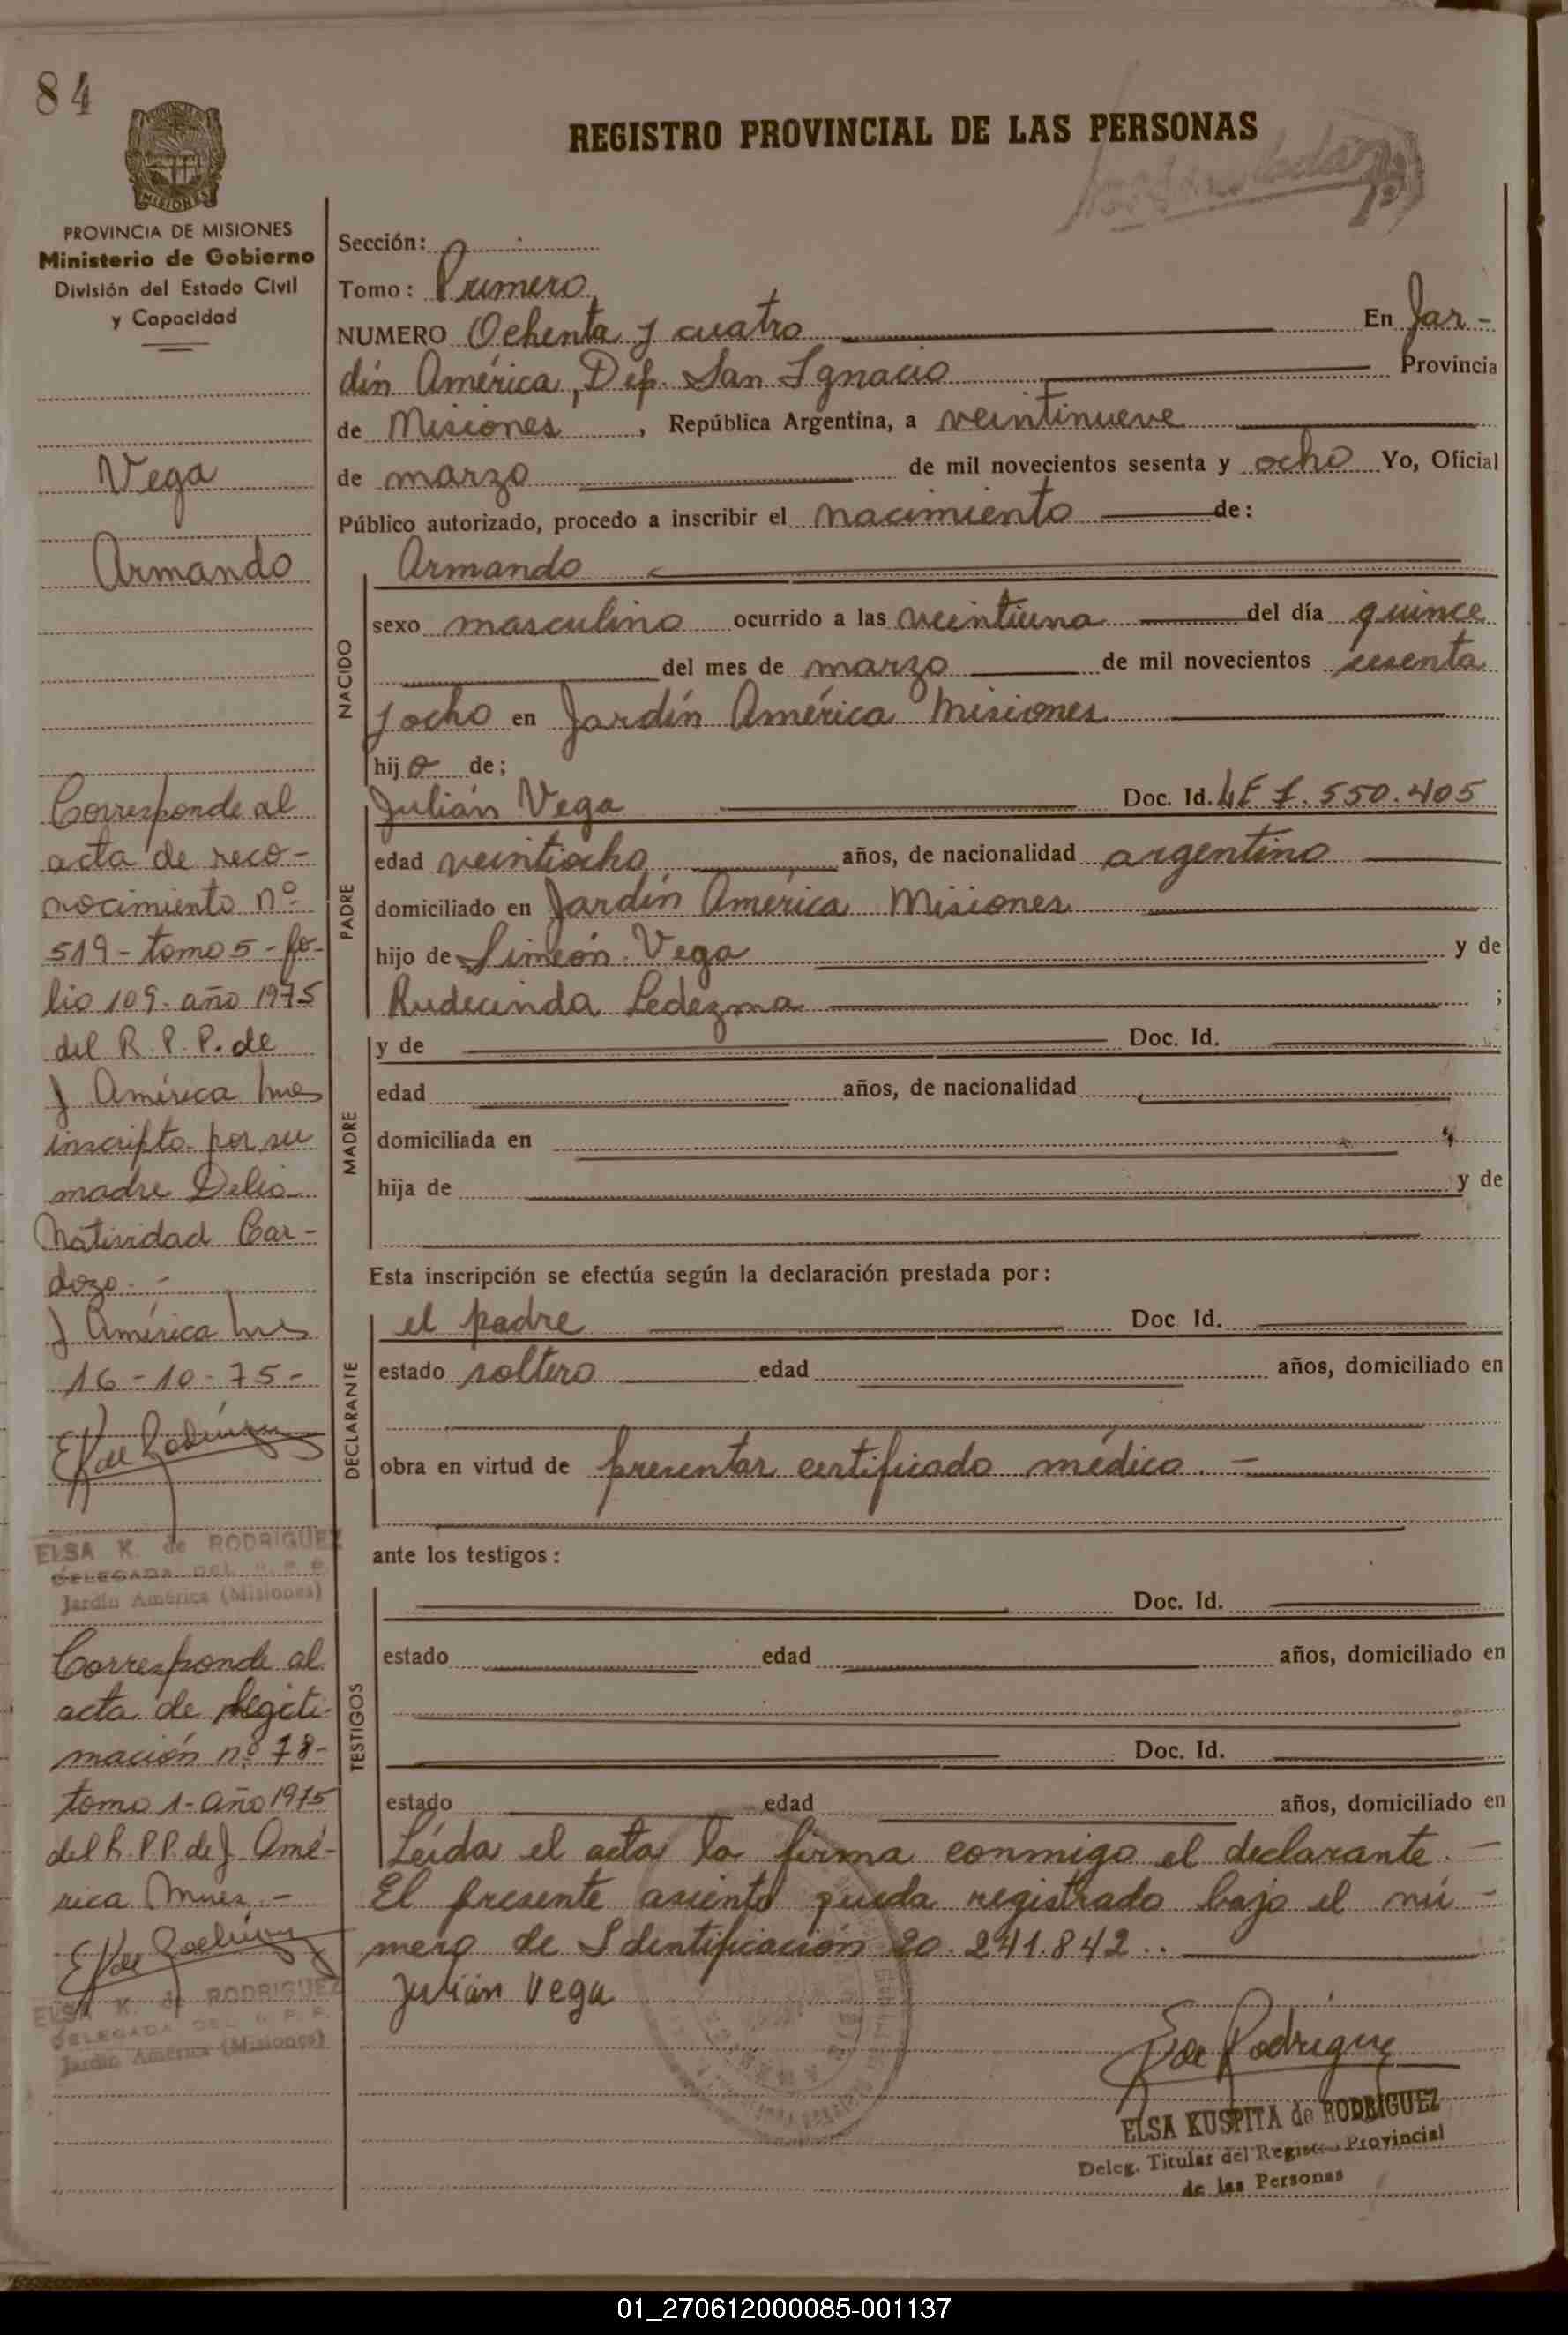 84
REGISTRO PROVINCIAL DE LAS PERSONAS
PROVINCIA DE MISIONES
Ministerio de Gobierno
División del Estado Civil
y Capacidad
Vega
Armando
Corresponde al
acta de reco-
nocimiento nº
519 - tomo 5 - fo-
lio 109 - año 1975
del R. P. P. de
J América Mnes
inscripto por su
madre Delia
Natividad Car-
dozo. -
J América Mnes
16 - 10 - 75 -
E K de Rodríguez
ELSA K. de RODRIGUEZ
DELEGADA DEL R. P. P.
Jardín América (Misiones)
Corresponde al
acta de legiti-
mación nº 78-
tomo 1 - año 1975
del R. P. P. de J. Amé-
rica Mnes. -
E K de Rodríguez
ELSA K. de RODRIGUEZ
DELEGADA DEL R. P. P.
Jardín América (Misiones)
Sección:
Tomo: Primero
NUMERO Ochenta y cuatro En Jar-
dín América, Dep. San Ignacio Provincia
de Misiones, República Argentina, a veintinueve
de marzo de mil novecientos sesenta y ocho Yo, Oficial
Público autorizado, procedo a inscribir el nacimiento de:
NACIDO
Armando
sexo masculino ocurrido a las veintiuna del día quince
del mes de marzo de mil novecientos sesenta
y ocho en Jardín América Misiones
hijo de;
PADRE
Julián Vega Doc. Id. LE 7.550.405
edad veintiocho años, de nacionalidad argentino
domiciliado en Jardín América Misiones
hijo de Simeón Vega y de
Rudecinda Ledezma ;
MADRE
y de Doc. Id.
edad años, de nacionalidad
domiciliada en
hija de y de
Esta inscripción se efectúa según la declaración prestada por:
DECLARANTE
el padre Doc Id.
estado soltero edad años, domiciliado en
obra en virtud de presentar certificado médico. -
ante los testigos:
TESTIGOS
Doc. Id.
estado edad años, domiciliado en
Doc. Id.
estado edad años, domiciliado en
Leída el acta la firma conmigo el declarante. -
El presente asiento queda registrado bajo el nú-
mero de Identificación 20.241.842..
Julián Vega
E de Rodríguez
ELSA KUSPITA de RODRIGUEZ
Deleg. Titular del Registro Provincial
de las Personas
01_270612000085-001137